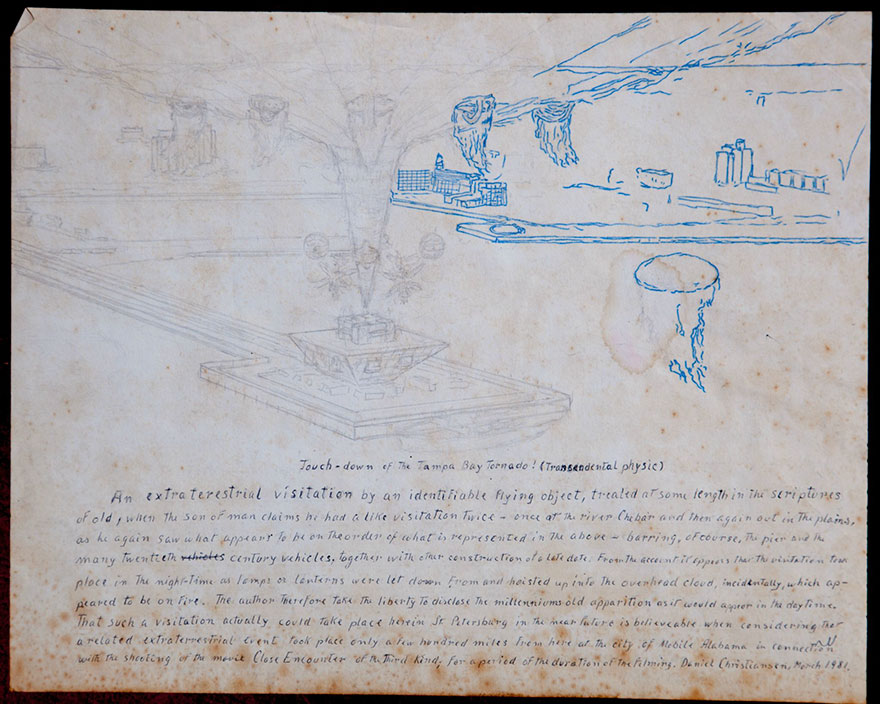 Touch-down of the Tampa Bay Tornado! (Transendental physic)
An extraterestrial visitation by an identifiable flying object, treated at some length in the scriptures
of old, when the son of man claims he had a like visitation twice – once at the river Chebar and then again out in the plains,
as he again saw what appears to be on the order of what is represented in the above – barring, of course, the pier and the
many twentieth vehicles century vehicles, together with other construction of a late date. From the account it appears that the visitation took
place in the night-time as lamps or lanterns were let down from and hoisted up into the overhead cloud, incidentally, which ap-
peared to be on fire. The author therefore take the liberty to disclose the millenniums old apparition as it would appear in the daytime.
That such a visitation actually could take place herein St Petersburg in the near future is believeable when considering that
a related extraterrestrial event took place only a few hundred miles from here at the city of Mobile Alabama in connection
with the shooting of the movie Close Encounter of the Third Kind, for a period of the duration of the filming. Daniel Christiansen, March 1981.